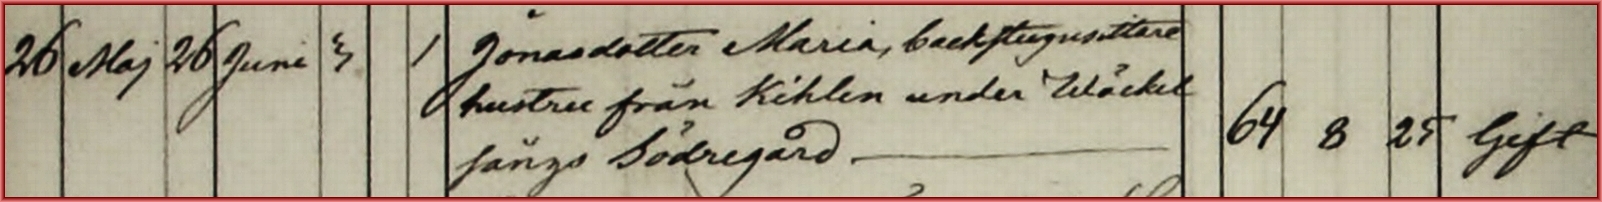 26 Maj 26 Juni 3 1 Jönasdotter Maria, backstugusittare
hustru från Kihlen under Wäckel
sängs Södregård. 64 8 25 Gift